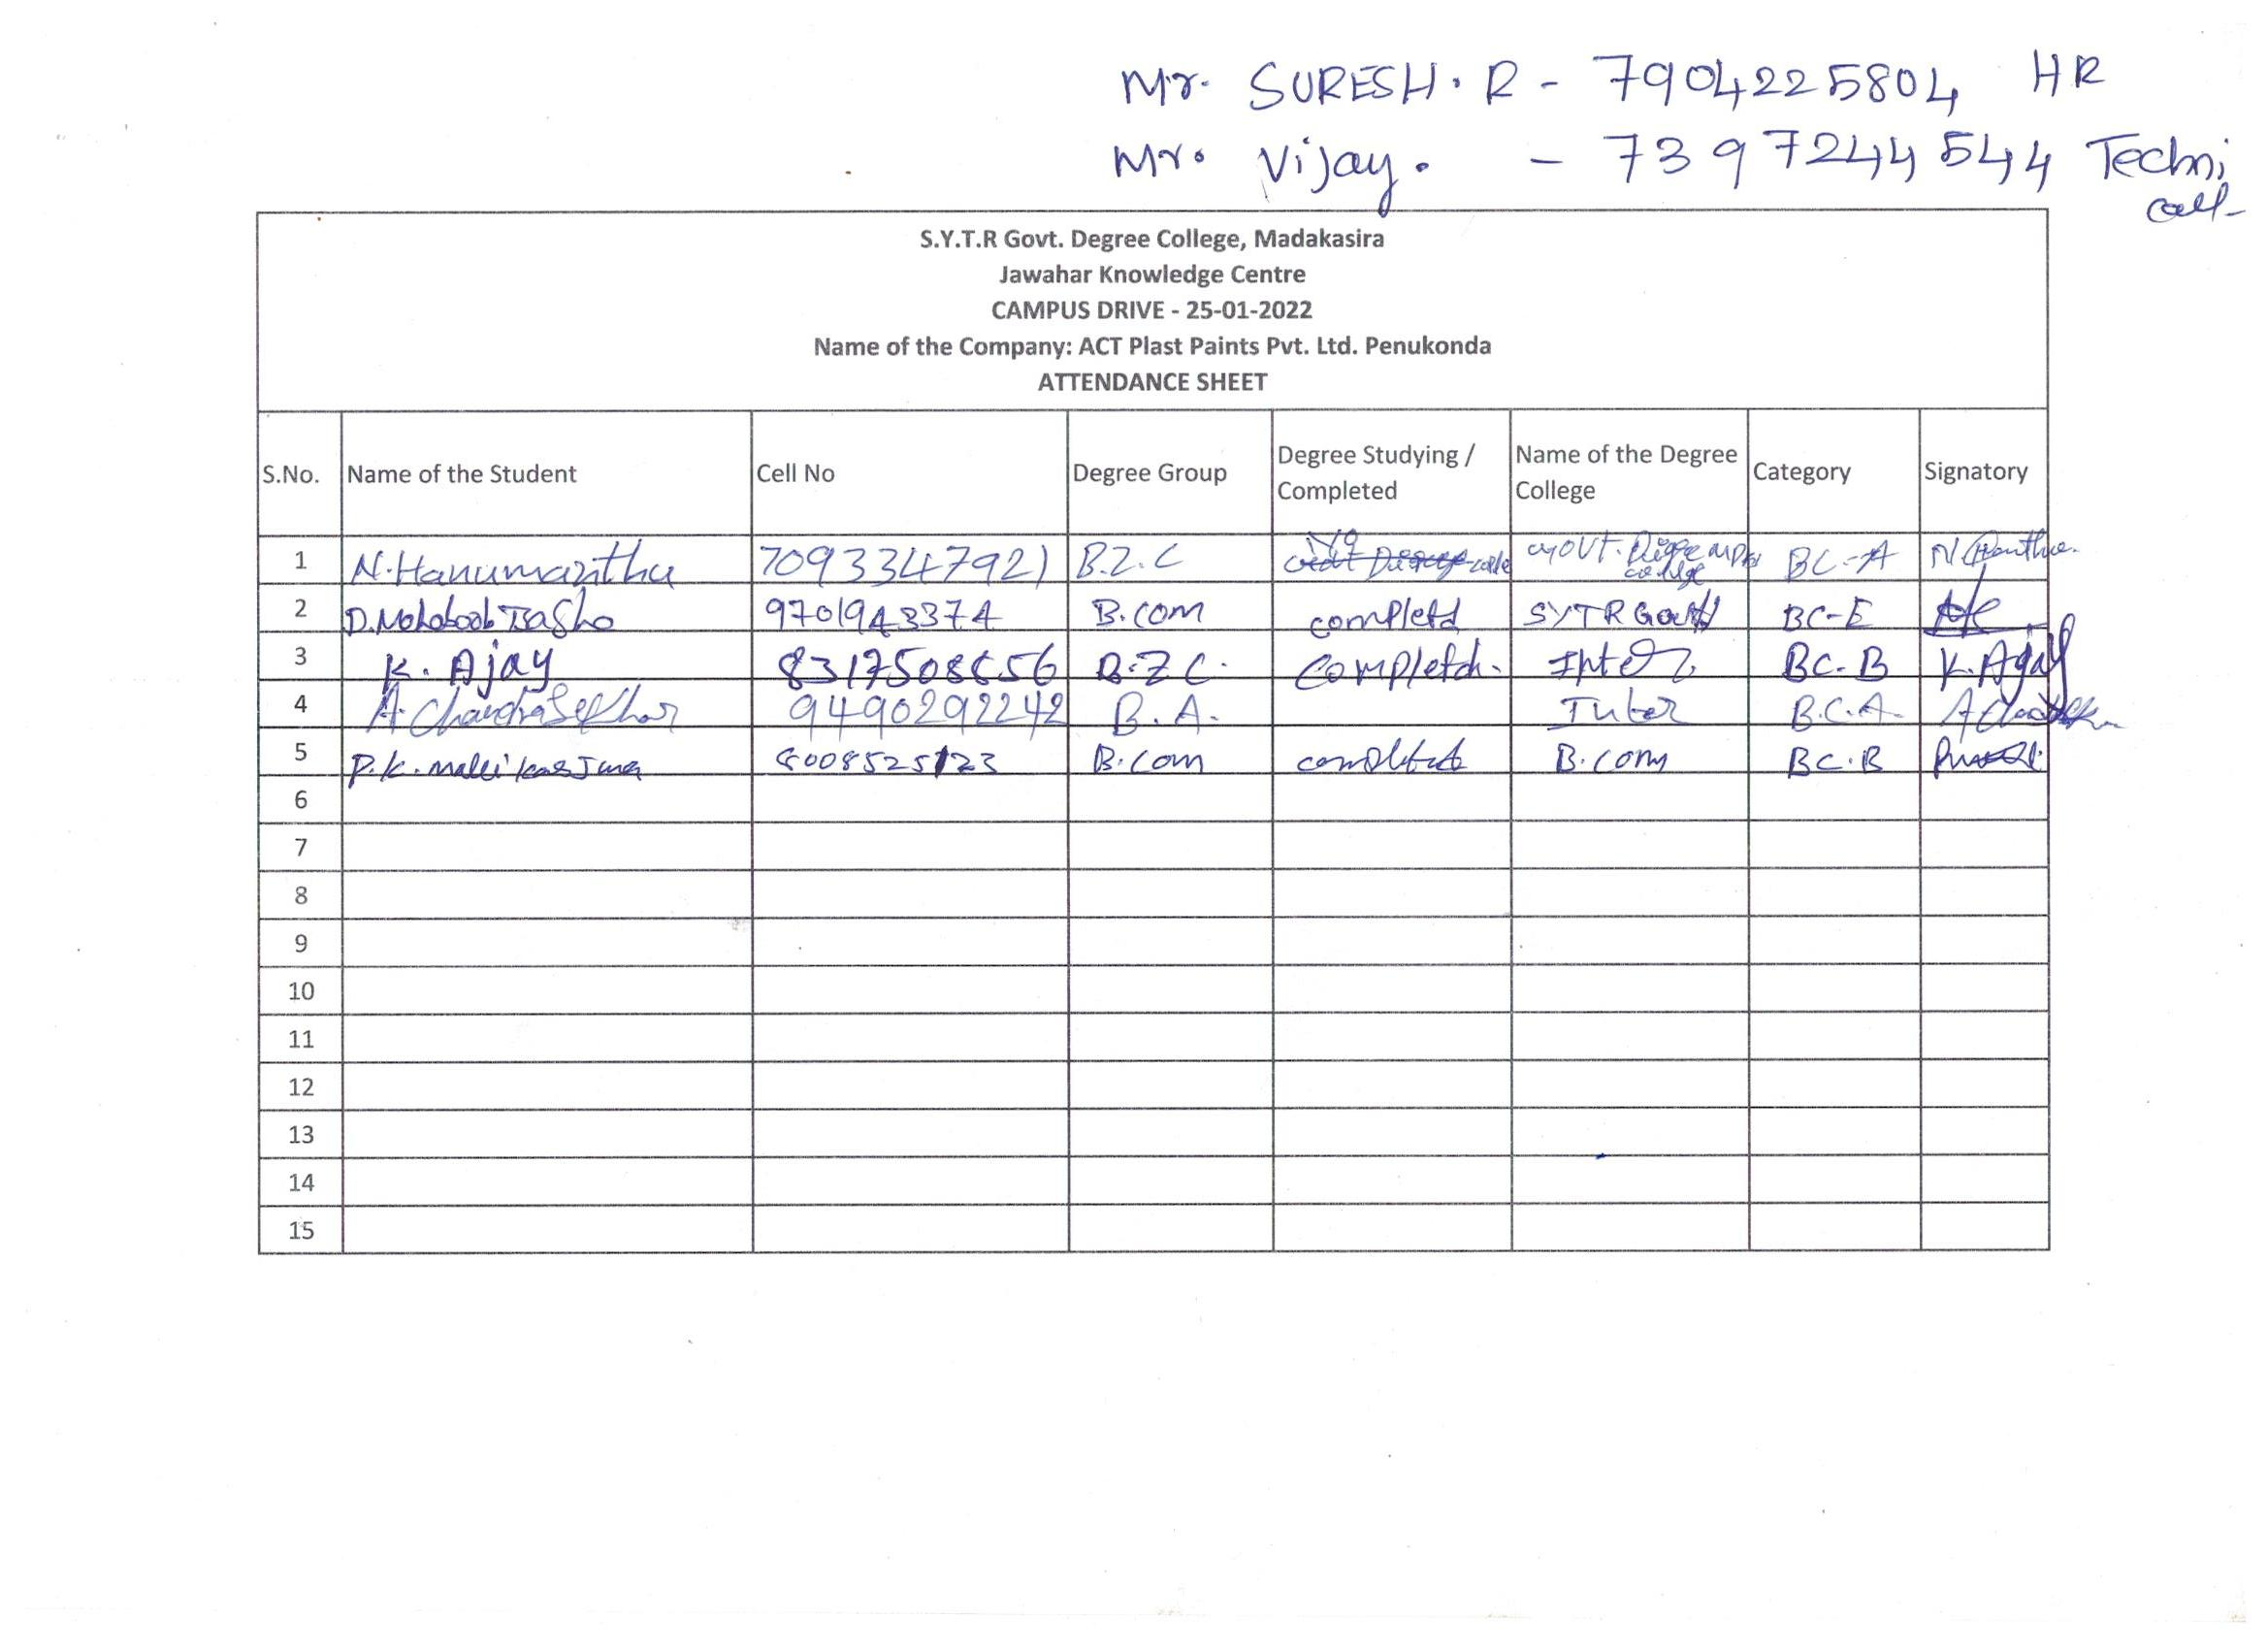 Mr. SURESH. R - 7904225804 HR
Mr. Vijay. - 7397244544 Techni
call-
S.Y.T.R Govt. Degree College, Madakasira
Jawahar Knowledge Centre
CAMPUS DRIVE - 25-01-2022
Name of the Company: ACT Plast Paints Pvt. Ltd. Penukonda
ATTENDANCE SHEET
S.No. Name of the Student Cell No Degree Group Degree Studying / Completed Name of the Degree College Category Signatory
1 N.Hanumanthu 7093347921 B.Z.C college BC-A
2 9701943374 B.com completd SYTR BC-E
3 K. Ajay B.Z.C. BC-B K.Ajay
4 A. ChandraSekhar 9490292242 B.A. Inter B.C.A.
5 P.K. mallikarjuna 8008525123 B.com B.com BC.B
6
7
8
9
10
11
12
13
14
15